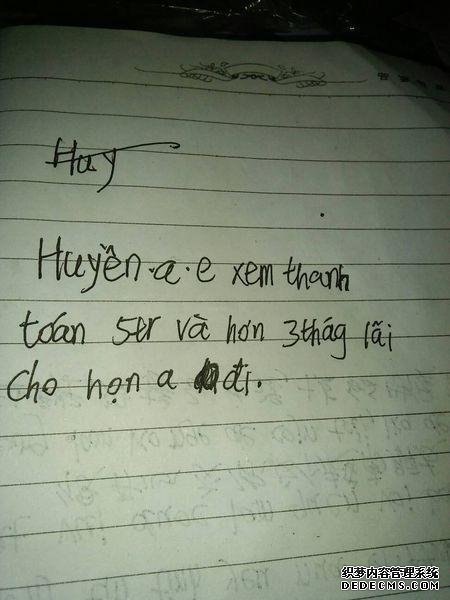 Huy
Huyền. a. e xem thanh
toán 5tr và hơn 3thág lãi
cho họn a đi.
织梦内容管理系统
DEDECMS.COM